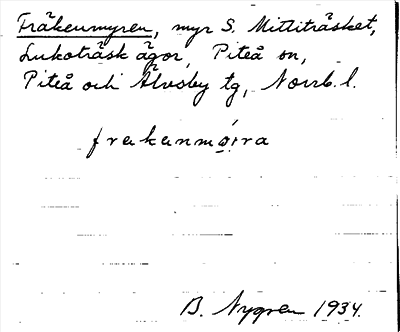 Fräkenmyren, myr S. Mittiträsket,
Lukoträsk ägor, Piteå sn,
Piteå och Älvsby tg, Norrb. l.
frakanmøira
B. Nygren 1934.